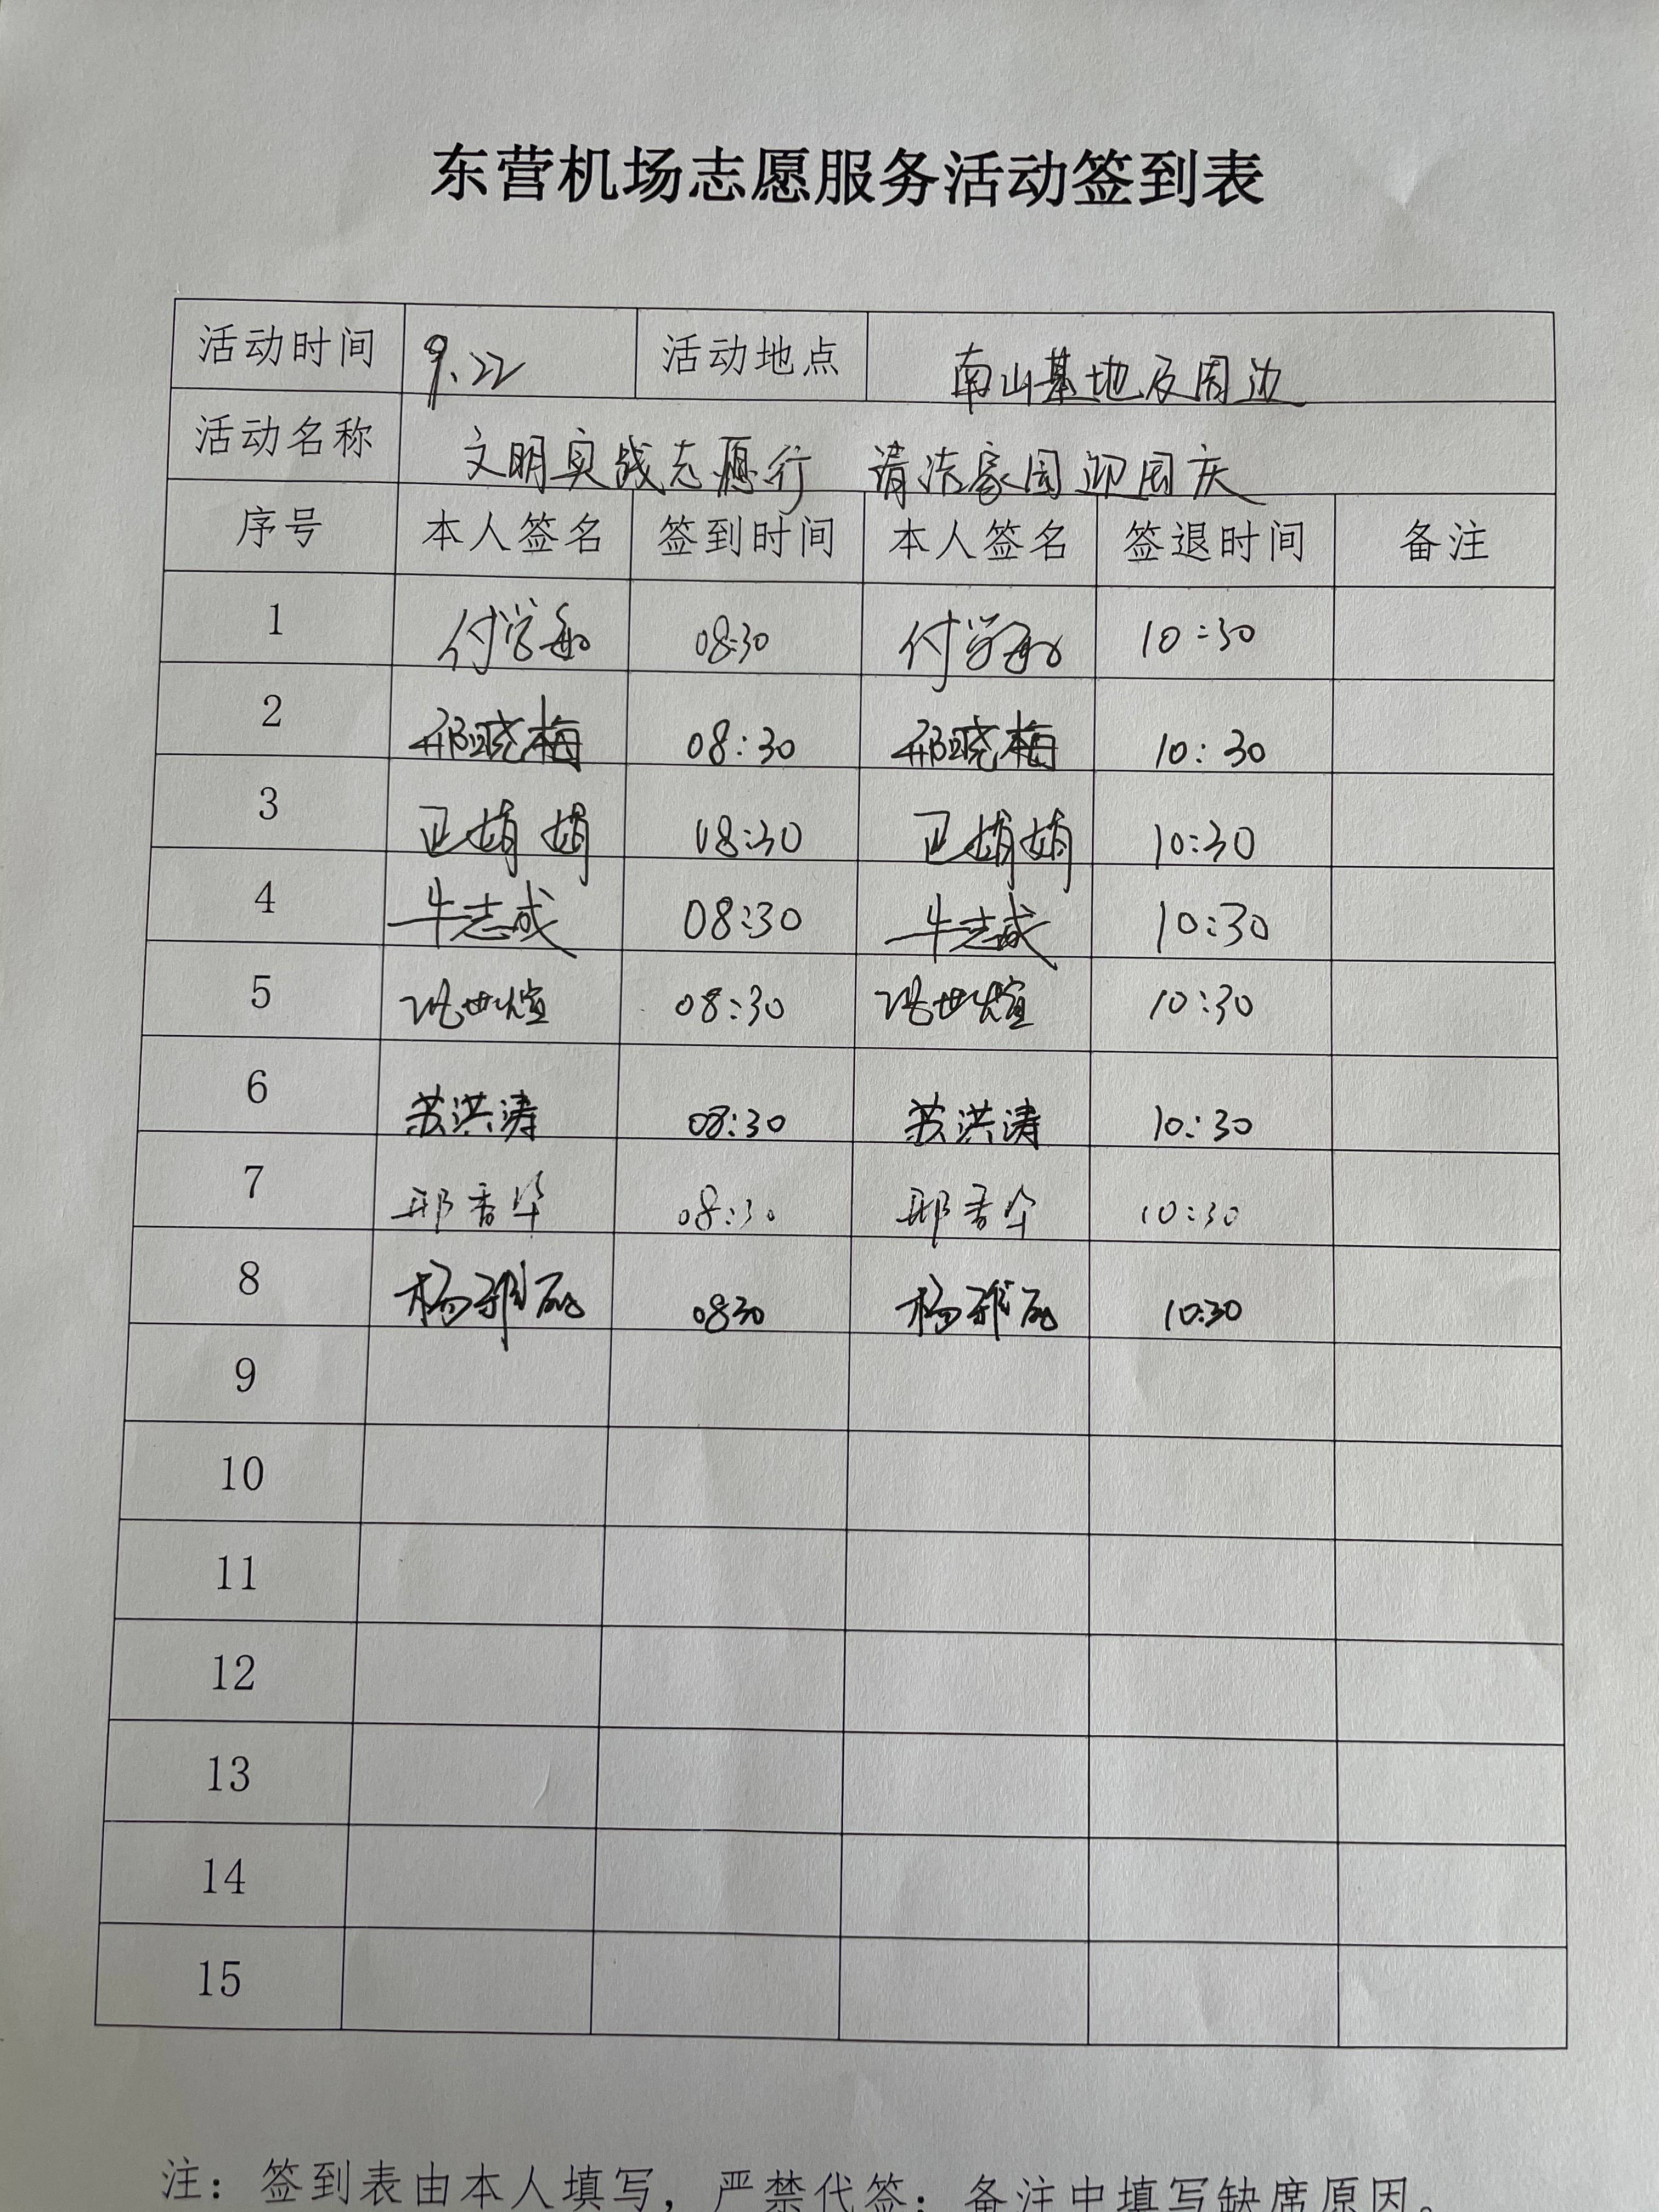 东营机场志愿服务活动签到表
活动时间 9.22 活动地点 南山基地及周边
活动名称 文明实践志愿行 清洁家园迎国庆
序号 本人签名 签到时间 本人签名 签退时间 备注
1 付学 08:30 付学 10:30
2 邢晓梅 08:30 邢晓梅 10:30
3 卫娟娟 08:30 卫娟娟 10:30
4 牛志成 08:30 牛志成 10:30
5 世煊 08:30 世煊 10:30
6 苏洪涛 08:30 苏洪涛 10:30
7 邢香华 08:30 邢香华 10:30
8 杨雅 0830 杨雅 10:30
9
10
11
12
13
14
15
注：签到表由本人填写，严禁代签；备注中填写缺席原因。